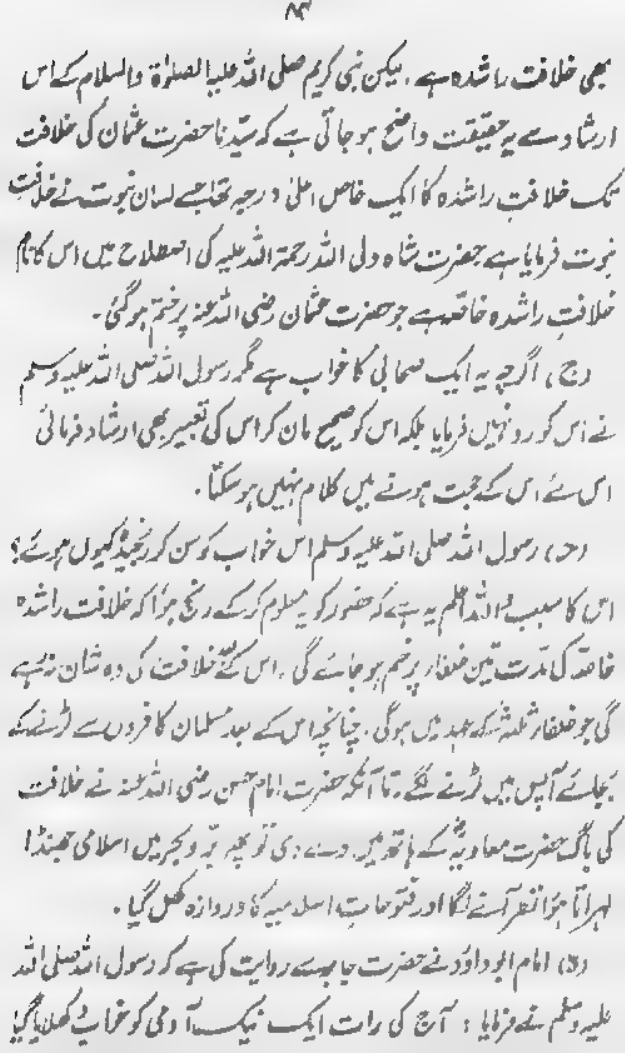 ۸۳
بھی خلافت راشدہ ہے۔ لیکن نبی کریم صلی اللہ علیہ الصلوٰۃ والسلام کے اس
ارشاد سے یہ حقیقت واضح ہو جاتی ہے کہ سیّدنا حضرت عثمان کی خلافت
تک خلافتِ راشدہ کا ایک خاص اعلیٰ درجہ تھا جسے لسان نبوت نے خلافتِ
نبوت فرمایا ہے حضرت شاہ ولی اللہ رحمۃ اللہ علیہ کی اصطلاح میں اس کا نام
خلافتِ راشدہ خاصّہ ہے جو حضرت عثمان رضی اللہ عنہ پر ختم ہو گئی۔
(ج) اگرچہ یہ ایک صحابی کا خواب ہے مگر رسول اللہ صلی اللہ علیہ وسلم
نے اس کو رد نہیں فرمایا بلکہ اس کو صحیح مان کر اس کی تعبیر بھی ارشاد فرمائی
اس لئے اس کے حجت ہونے میں کلام نہیں ہو سکتا۔
(د) رسول اللہ صلی اللہ علیہ وسلم اس خواب کو سن کر رنجیدہ کیوں ہوئے؟
اس کا سبب واللہ اعلم یہ ہے کہ حضور کو یہ معلوم کر کے رنج ہوا کہ خلافت راشدہ
خاصّہ کی مدّت تین خلفاء پر ختم ہو جائے گی۔ اس کے بعد خلافت کی وہ شان نہ رہے
گی جو خلفاء ثلٰثہ کے عہد میں ہوگی۔ چنانچہ اس کے بعد مسلمان کافروں سے لڑنے کے
بجائے آپس میں لڑنے لگے۔ تا آنکہ حضرت امام حسن رضی اللہ عنہ نے خلافت
کی باگ حضرت معاویہؓ کے ہاتھ میں دے دی تو پھر برّ و بحر میں اسلامی جھنڈا
لہراتا ہوا نظر آنے لگا اور فتوحاتِ اسلامیہ کا دروازہ کھل گیا۔
(۵) امام ابو داؤد نے حضرت جابر سے روایت کی ہے کہ رسول اللہ صلی اللہ
علیہ وسلم نے فرمایا : آج کی رات ایک نیک آدمی کو خواب دکھلایا گیا